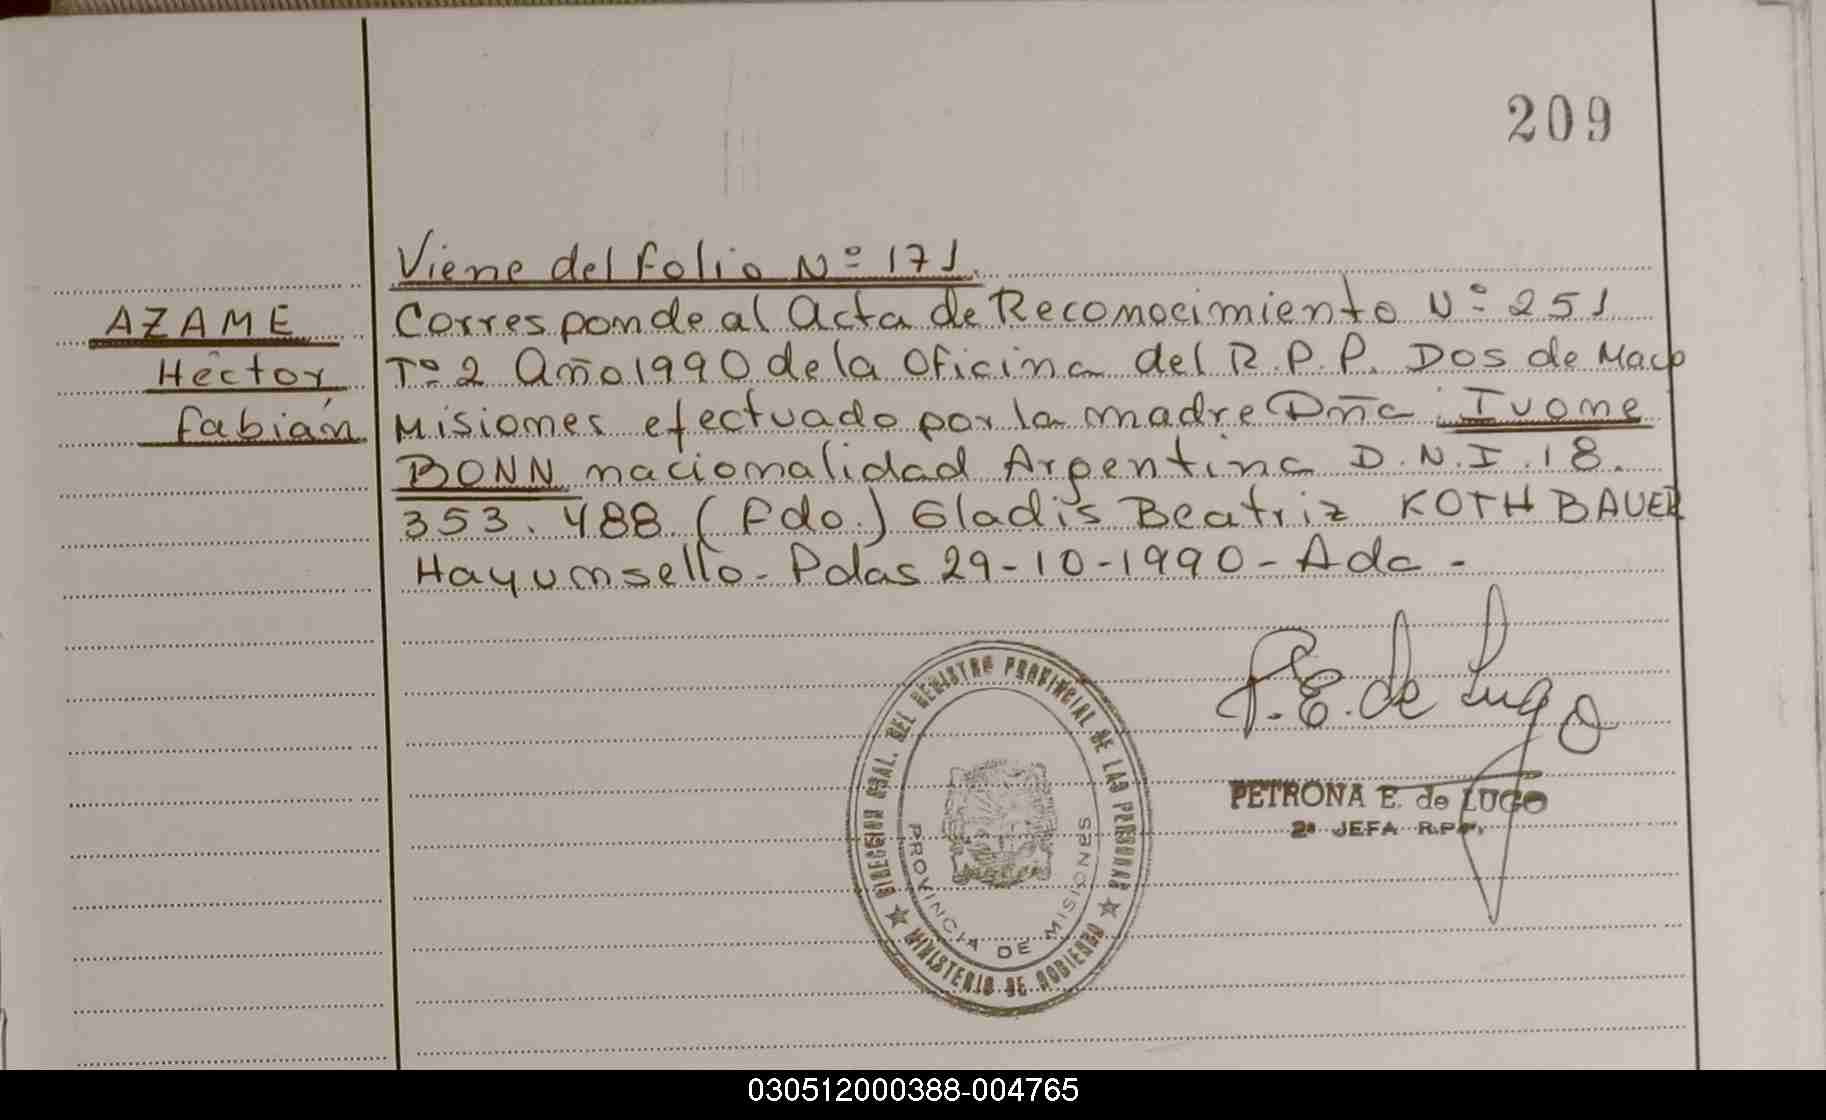 209
Viene del folio Nº 171
AZAME
Héctor
Fabián
Corresponde al Acta de Reconocimiento Nº 251
Tº 2 Año 1990 de la Oficina del R.P.P. Dos de Mayo
Misiones efectuado por la madre Dña Ivone
BONN nacionalidad Argentina D.N.I. 18.
353.488 (Fdo.) Gladis Beatriz KOTHBAUER
Hay un sello - Pdas 29-10-1990 - Ada -
P.E. de Lugo
PETRONA E. de LUGO
2ª JEFA R.P.P.
DIRECCION GRAL. DEL REGISTRO PROVINCIAL DE LAS PERSONAS
PROVINCIA DE MISIONES
MINISTERIO DE GOBIERNO
030512000388-004765